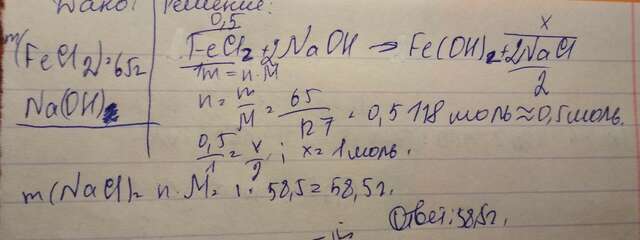 Дано: Решение:
0,5 x
m(FeCl2)=65г FeCl2+2NaOH → Fe(OH)2+2NaCl
1 m = n·M 2
Na(OH)2 n = m/M = 65/127 = 0,5118 моль ≈ 0,5 моль.
0,5/1 = x/2; x = 1 моль.
m(NaCl)= n·M= 1·58,5=58,5г.
Ответ:58,5г.